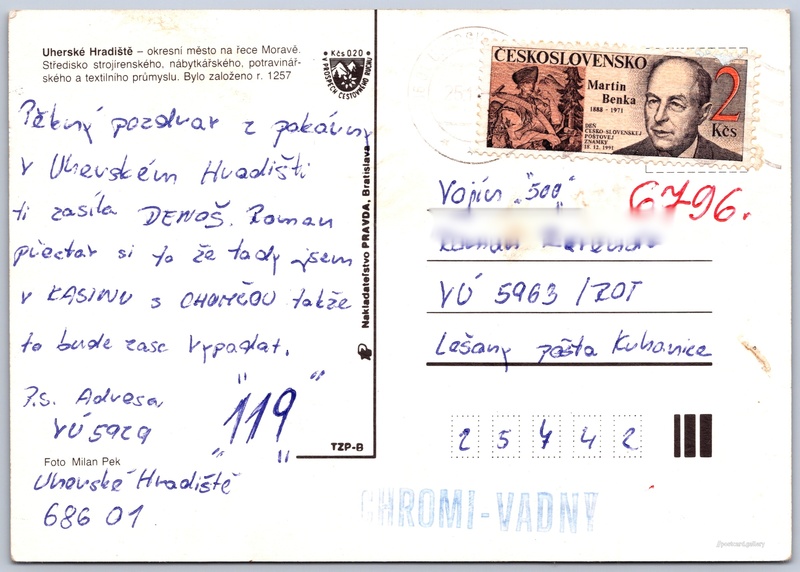 Uherské Hradiště – okresní město na řece Moravě.
Středisko strojírenského, nábytkářského, potravinář-
ského a textilního průmyslu. Bylo založeno r. 1257
• Kčs 020 •
V PROSPĚCH CESTOVNÉHO RUCHU
Pěkný pozdrav z
v Uherském Hradišti
ti zasílá DENOŠ. Roman
přečtar si to že tady jsem
v KASINU s takže
to bude zase vypadat.
P.s. Adresa
VÚ 5929
"119"
Foto Milan Pek
Uherské Hradiště
686 01.
TZP-B
Nakladateľstvo PRAVDA, Bratislava
ČESKOSLOVENSKO
Martin
Benka
1888 - 1971
DEŇ
ČESKO-SLOVENSKEJ
POŠTOVEJ
ZNÁMKY
18. 12. 1991
2
Kčs
Vojín "500"
6796.
VÚ 5963 /ROT
Lešany pošta Kuhanice
2 5 7 4 2
CHROMI-VADNÝ
postcard.gallery